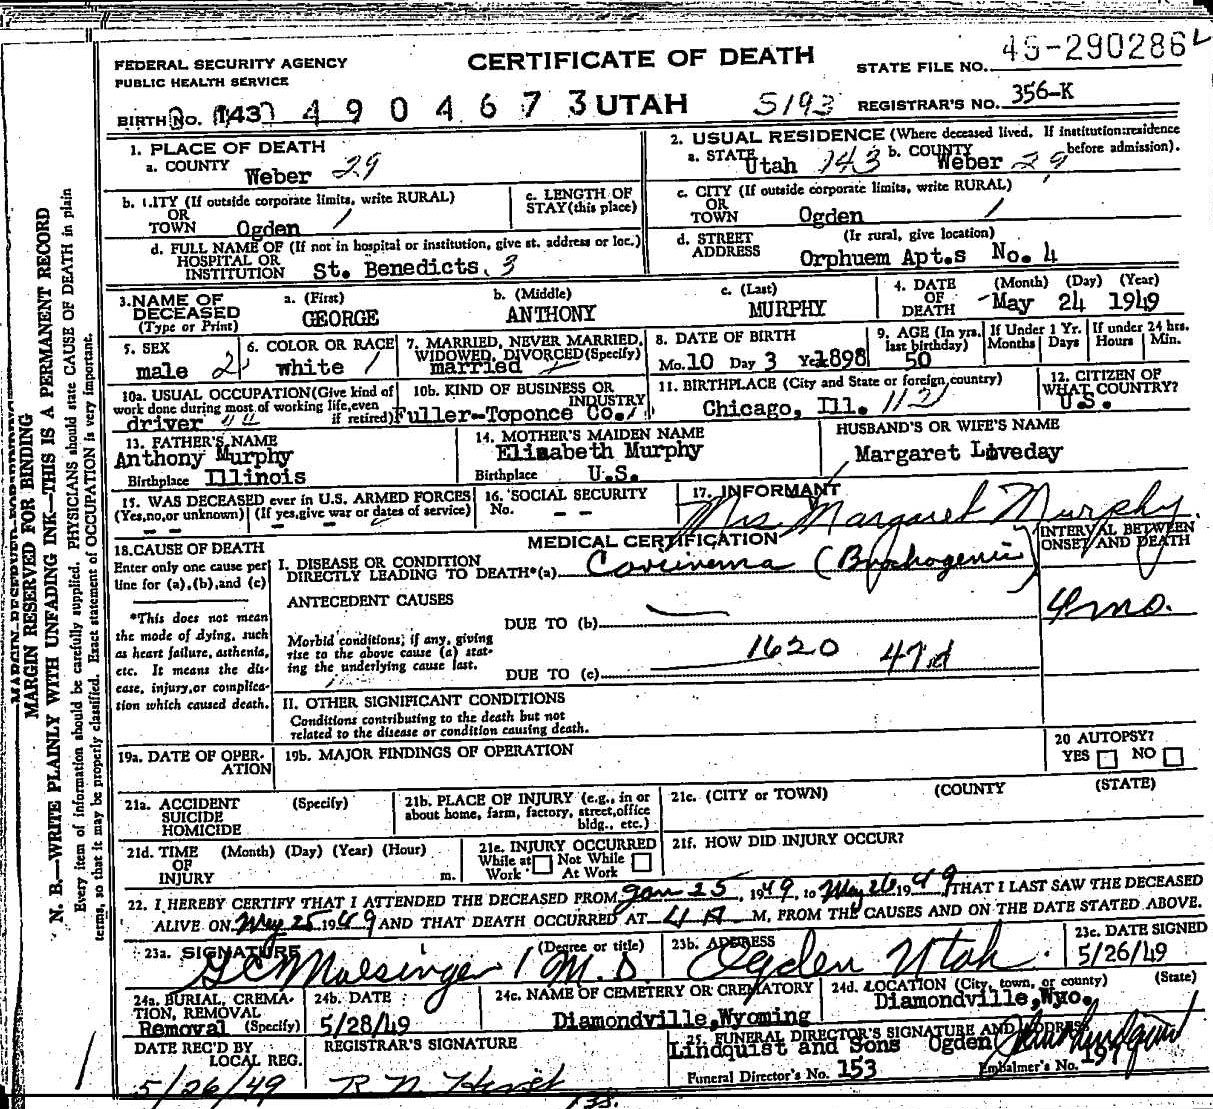 CERTIFICATE OF DEATH
FEDERAL SECURITY AGENCY
PUBLIC HEALTH SERVICE
STATE FILE NO. 49-290286
BIRTH NO. (143) 4904673 UTAH 5193 REGISTRAR'S NO. 356-K
MARGIN RESERVED FOR BINDING
N. B.—WRITE PLAINLY WITH UNFADING INK—THIS IS A PERMANENT RECORD
Every item of information should be carefully supplied. PHYSICIANS should state CAUSE OF DEATH in plain
terms, so that it may be properly classified. Exact statement of OCCUPATION is very important.
1. PLACE OF DEATH
a. COUNTY
Weber 29
2. USUAL RESIDENCE (Where deceased lived. If institution: residence before admission).
a. STATE Utah 143 b. COUNTY Weber 29
b. CITY (If outside corporate limits, write RURAL)
OR
TOWN Ogden 1
c. LENGTH OF
STAY (this place)
c. CITY (If outside corporate limits, write RURAL)
OR
TOWN Ogden 1
d. FULL NAME OF (If not in hospital or institution, give st. address or loc.)
HOSPITAL OR
INSTITUTION St. Benedicts. 3
d. STREET (If rural, give location)
ADDRESS Orphuem Apt.s No. 4
3. NAME OF
DECEASED
(Type or Print)
a. (First) GEORGE
b. (Middle) ANTHONY
c. (Last) MURPHY
4. DATE
OF
DEATH
(Month) (Day) (Year)
May 24 1949
5. SEX
male 2
6. COLOR OR RACE
white 1
7. MARRIED, NEVER MARRIED,
WIDOWED, DIVORCED (Specify)
married
8. DATE OF BIRTH
Mo. 10 Day 3 Year 1898
9. AGE (In yrs. last birthday)
50
If Under 1 Yr.
Months Days
If under 24 hrs.
Hours Min.
10a. USUAL OCCUPATION (Give kind of
work done during most of working life, even
if retired)
driver
10b. KIND OF BUSINESS OR
INDUSTRY
Fuller-Toponce Co.
11. BIRTHPLACE (City and State or foreign country)
Chicago, Ill. 112
12. CITIZEN OF
WHAT COUNTRY?
U.S.
13. FATHER'S NAME
Anthony Murphy
Birthplace Illinois
14. MOTHER'S MAIDEN NAME
Elizabeth Murphy
Birthplace U.S.
HUSBAND'S OR WIFE'S NAME
Margaret Loveday
15. WAS DECEASED ever in U.S. ARMED FORCES
(Yes, no, or unknown) (If yes, give war or dates of service)
– –
16. SOCIAL SECURITY
No. – –
17. INFORMANT
Mrs. Margaret Murphy.
18. CAUSE OF DEATH
Enter only one cause per
line for (a), (b), and (c)
*This does not mean
the mode of dying, such
as heart failure, asthenia,
etc. It means the dis-
ease, injury, or complica-
tion which caused death.
MEDICAL CERTIFICATION
INTERVAL BETWEEN
ONSET AND DEATH
I. DISEASE OR CONDITION
DIRECTLY LEADING TO DEATH*(a)
4 mo.
ANTECEDENT CAUSES
DUE TO (b)
Morbid conditions, if any, giving
rise to the above cause (a) stat-
ing the underlying cause last.
1620 47d
DUE TO (c)
II. OTHER SIGNIFICANT CONDITIONS
Conditions contributing to the death but not
related to the disease or condition causing death.
19a. DATE OF OPER-
ATION
19b. MAJOR FINDINGS OF OPERATION
20 AUTOPSY?
YES NO
21a. ACCIDENT
SUICIDE
HOMICIDE
(Specify)
21b. PLACE OF INJURY (e.g., in or
about home, farm, factory, street, office
bldg., etc.)
21c. (CITY or TOWN) (COUNTY (STATE)
21d. TIME
OF
INJURY
(Month) (Day) (Year) (Hour)
m.
21e. INJURY OCCURRED
While at Work Not While At Work
21f. HOW DID INJURY OCCUR?
22. I HEREBY CERTIFY THAT I ATTENDED THE DECEASED FROM Jan 25, 1949, to May 26 1949, THAT I LAST SAW THE DECEASED
ALIVE ON May 25 1949 AND THAT DEATH OCCURRED AT 4 A M, FROM THE CAUSES AND ON THE DATE STATED ABOVE.
23a. SIGNATURE (Degree or title)
M.D
23b. ADDRESS
Ogden Utah
23c. DATE SIGNED
5/26/49
24a. BURIAL, CREMA-
TION, REMOVAL
Removal (Specify)
24b. DATE
5/28/49
24c. NAME OF CEMETERY OR CREMATORY
Diamondville, Wyoming
24d. LOCATION (City, town, or county) (State)
Diamondville, Wyo.
DATE REC'D BY
LOCAL REG.
5/26/49
REGISTRAR'S SIGNATURE
25. FUNERAL DIRECTOR'S SIGNATURE AND ADDRESS
Lindquist and Sons Ogden
Funeral Director's No. 153
Embalmer's No.